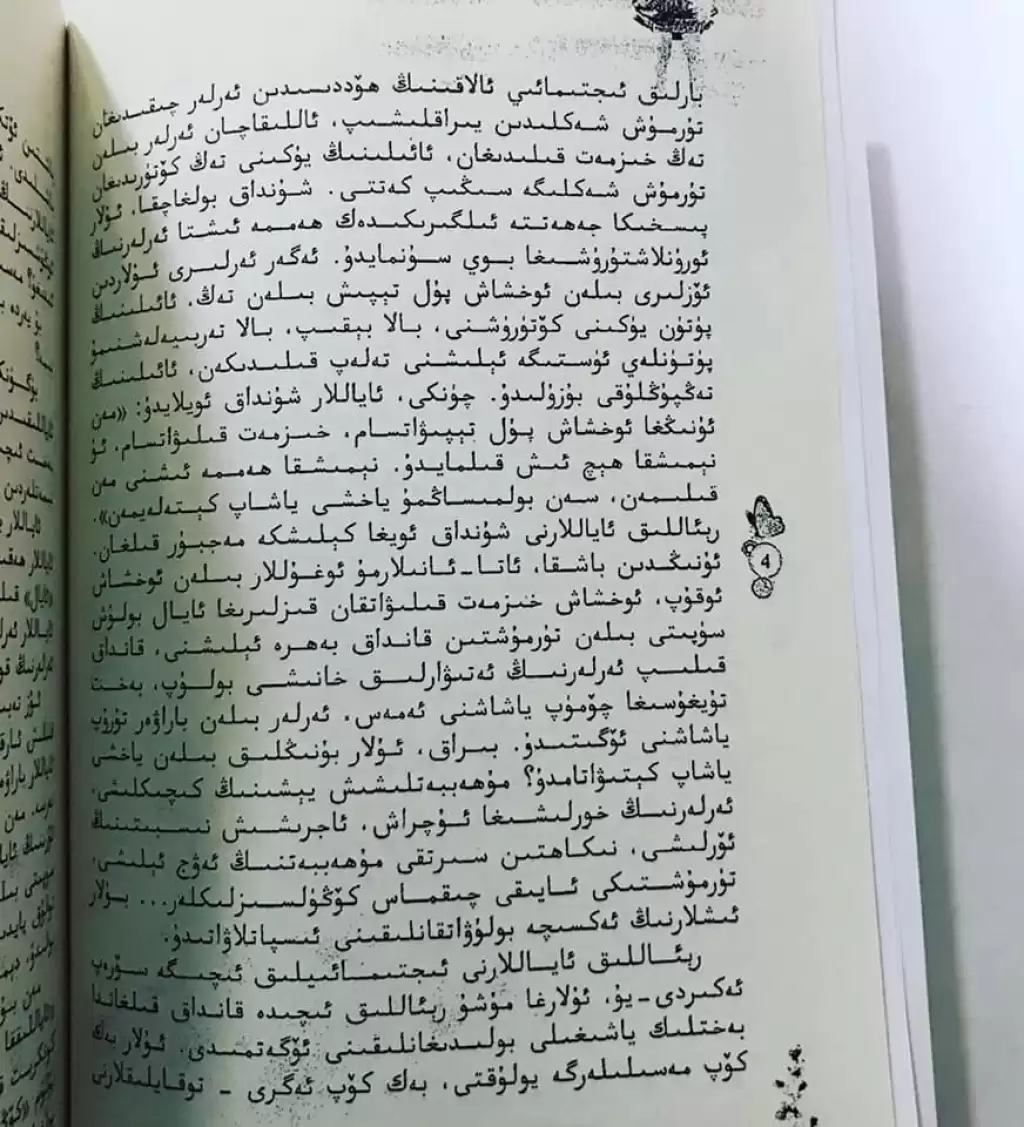 بارلىق ئىجتىمائىي ئالاقىنىڭ ھۆددىسىدىن ئەرلەر چىقىدىغان
تۇرمۇش شەكلىدىن يىراقلىشىپ، ئاللىقاچان ئەرلەر بىلەن
تەڭ خىزمەت قىلىدىغان، ئائىلىنىڭ يۈكىنى تەڭ كۆتۈرىدىغان
تۇرمۇش شەكلىگە سىڭىپ كەتتى. شۇنداق بولغاچقا، ئۇلار
پىسخىكا جەھەتتە ئىلگىرىكىدەك ھەممە ئىشتا ئەرلەرنىڭ
ئورۇنلاشتۇرۇشىغا بوي سۇنمايدۇ. ئەگەر ئەرلىرى ئۇلاردىن
ئۆزلىرى بىلەن ئوخشاش پۇل تېپىش بىلەن تەڭ، ئائىلىنىڭ
پۈتۈن يۈكىنى كۆتۈرۈشنى، بالا بېقىپ، بالا تەربىيەلەشنىمۇ
پۈتۈنلەي ئۈستىگە ئېلىشنى تەلەپ قىلىدىكەن، ئائىلىنىڭ
تەڭپۇڭلۇقى بۇزۇلىدۇ. چۈنكى، ئاياللار شۇنداق ئويلايدۇ: «مەن
ئۇنىڭغا ئوخشاش پۇل تېپىۋاتسام، خىزمەت قىلىۋاتسام، ئۇ
نېمىشقا ھېچ ئىش قىلمايدۇ. نېمىشقا ھەممە ئىشنى مەن
قىلىمەن، سەن بولمىساڭمۇ ياخشى ياشاپ كېتەلەيمەن».
رېئاللىق ئاياللارنى شۇنداق ئويغا كېلىشكە مەجبۇر قىلغان.
ئۇنىڭدىن باشقا، ئاتا-ئانىلارمۇ ئوغۇللار بىلەن ئوخشاش
ئوقۇپ، ئوخشاش خىزمەت قىلىۋاتقان قىزلىرىغا ئايال بولۇش
سۈپىتى بىلەن تۇرمۇشتىن قانداق بەھرە ئېلىشنى، قانداق
قىلىپ ئەرلەرنىڭ ئەتىۋارلىق خانىشى بولۇپ، بەخت
تۇيغۇسىغا چۆمۈپ ياشاشنى ئەمەس، ئەرلەر بىلەن باراۋەر تۇرۇپ
ياشاشنى ئۆگىتىدۇ. بىراق، ئۇلار بۇنىڭلىق بىلەن ياخشى
ياشاپ كېتىۋاتامدۇ؟ مۇھەببەتلىشىش يېشىنىڭ كىچىكلىشى،
ئەرلەرنىڭ خورلىشىغا ئۇچراش، ئاجرىشىش نىسبىتىنىڭ
ئۆرلىشى، نىكاھتىن سىرتقى مۇھەببەتنىڭ ئەۋج ئېلىشى،
تۇرمۇشتىكى ئايىقى چىقماس كۆڭۈلسىزلىكلەر... بۇلار
ئىشلارنىڭ ئەكسىچە بولۇۋاتقانلىقىنى ئىسپاتلاۋاتىدۇ.
رېئاللىق ئاياللارنى ئىجتىمائىيلىق ئىچىگە سۆرەپ
ئەكىردى-يۇ، ئۇلارغا مۇشۇ رېئاللىق ئىچىدە قانداق قىلغاندا
بەختلىك ياشىغىلى بولىدىغانلىقىنى ئۆگەتمىدى. ئۇلار بەك
كۆپ مەسىلىلەرگە يولۇقتى، بەك كۆپ ئەگرى - توقايلىقلارنى
4